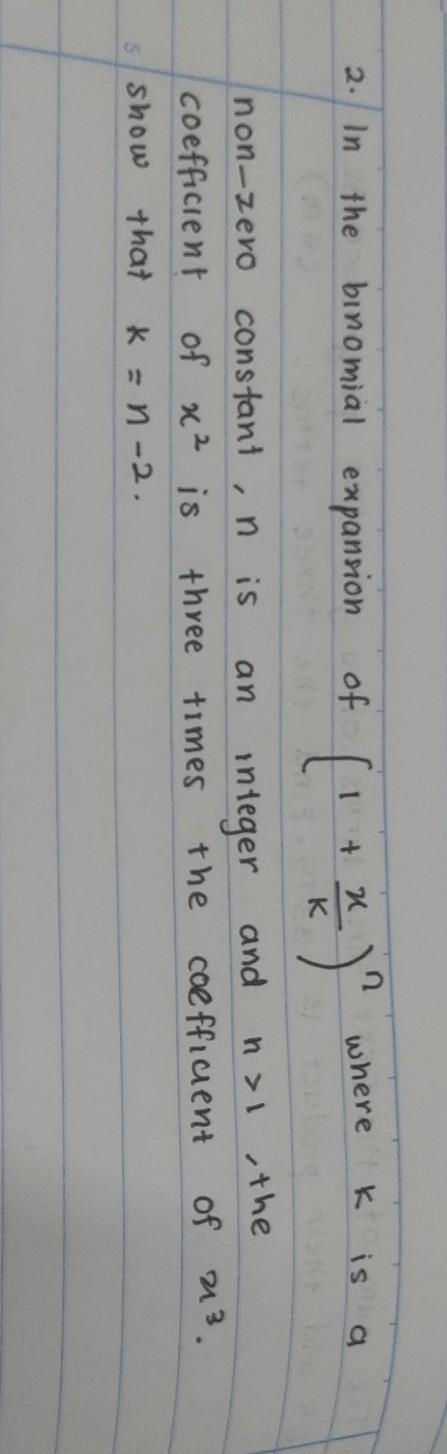 2. In the binomial expansion of (1 + x/k)^n where k is a
non-zero constant, n is an integer and n > 1, the
coefficient of x² is three times the coefficient of x³.
show that k = n - 2.